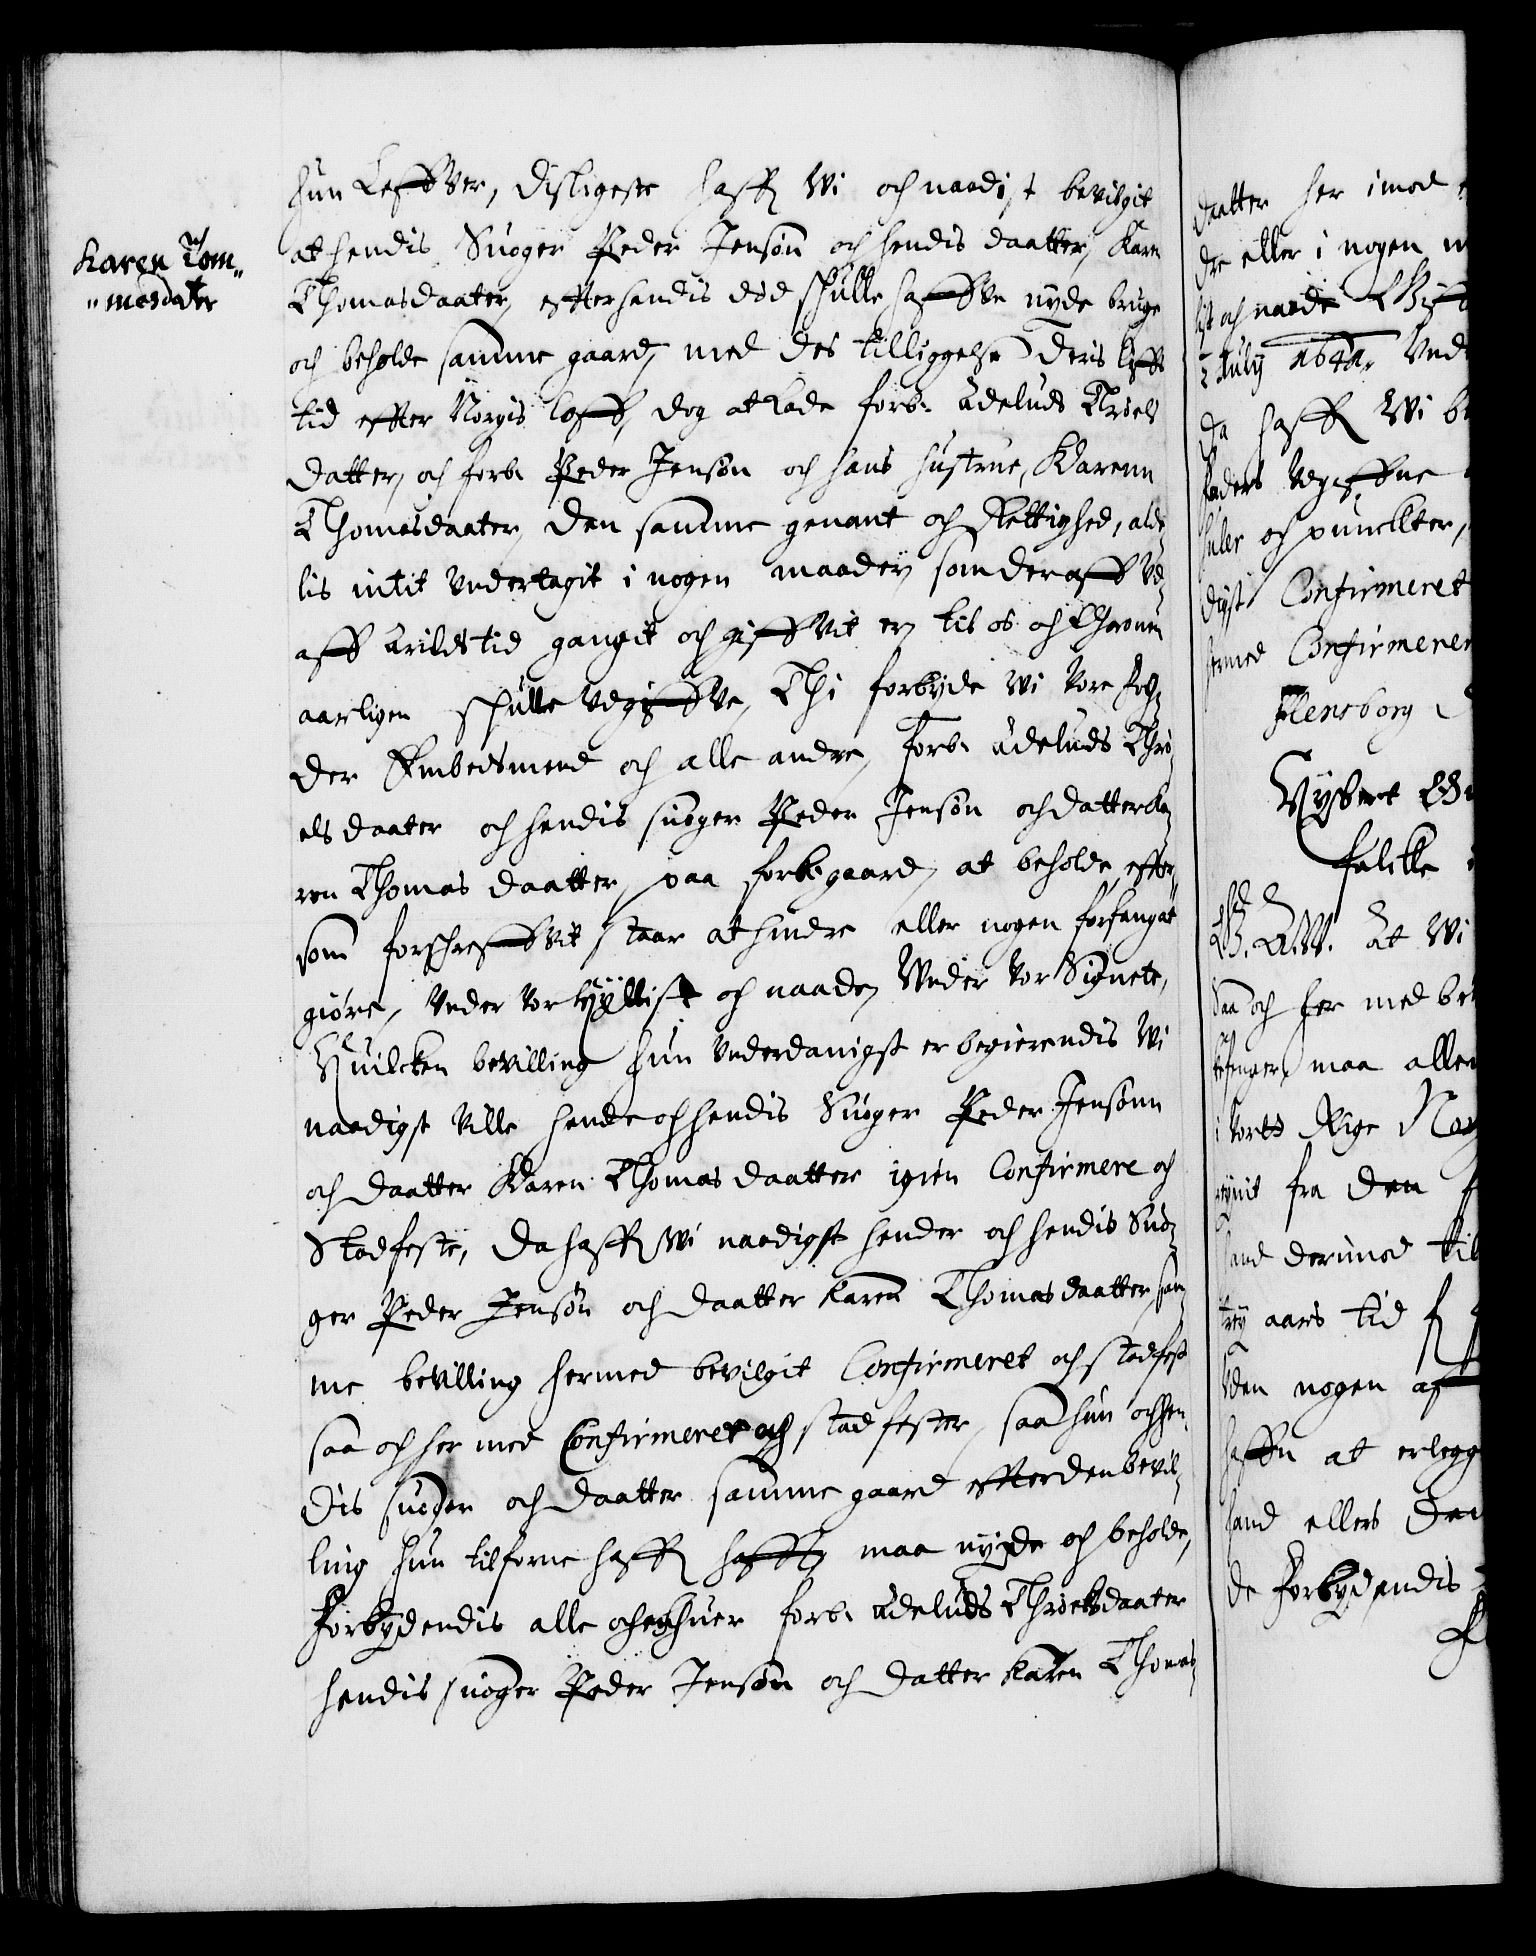 Karen Tom„
„mosdater
hun Leffver, disligeste haffr Wi och naadist bevilgit
at hendis Suoger Peder Jensøn och hendis daatter, Karen
Thomasdaater, efter hendis død schulle haffve nyde bruge
och beholde samme gaard, med des tilliggelse Deris liffs
tid effter Norgis loff, dog at Lade forbe. Adeluds Troels
datter, och forbe Peder Jensøn och hans hustrue, Karenn
Thomasdaater, den samme genant och Rettighed, alde,
lis intit undertagit i nogen maader som deraff Ud,
aff Arildtid gangit och giffvit er til os och Chronen
aarligen schulle udgiffve, Thi forbyde Wi Vore Fog,
der Embedsmend och alle andre, forbe. Adeluds Thro,
els daater och hendis suoger Peder Jensøn och datter Ka,
ren Thomas daatter, paa forbe gaard, at beholde efter,
som forschreffvit staar at hindre eller nogen forfang at
giøre, Under vor hyllist och naade, Under vor Signete,
Huilcken bevilling hun Underdanigst er begierendis Wi
naadigst Ville hende och hendis Suoger Peder Jensønn
och daatter Karen Thomas daatter igien Confirmere och
Stadfeste, Da haffr Wi naadigst hender och hendis Suo,
ger Peder Jensøn och daatter Karen Thomasdaatter, sam,
me bevilling hermed bevilgit Confirmeret och stadfest
saa och her med Confirmeret och stadfester, saa hun och hen,
dis suoger och daatter samme gaard effter den bevil,
ling hun tilforne haffr haffr maa nyde och beholde,
Forbydendis alle och enhuer forbe. Adeluds Throelsdaater
hendis suoger Peder Jensøn och datter Karen Thomas,
daatter her imod
dre eller i nogen
och naade
2 July 1641. Und
da haffr Wi
faders udgiffne
och puncter,
digst Confirmeret
hermed Confirmerer
Flensborg
falcke
G. A. W. At Wi
Saa och her med
maa allen
i vort Rige
fra den
derimod til
trey aars tid
Uden nogen
haffr at erlegg
hand ellers den
de Forbydendis